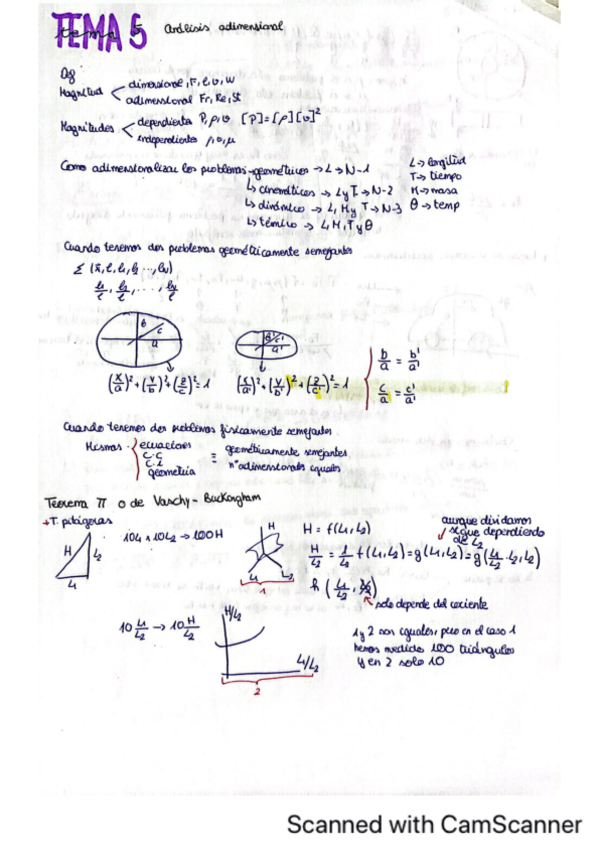 TEMA 5 Análisis adimensional
Def
Magnitud < dimensional, F, l, v, w
adimensional Fr, Re, St
Magnitudes < dependiente P, ρ, v [P]=[ρ][v]²
independientes ρ, v, μ
Como adimensionalizar los problemas → geométricos → L → N-1
↳ cinemáticos → L y T → N-2
↳ dinámico → L, M y T → N-3
↳ térmico → L, M, T y θ
L → longitud
T → tiempo
M → masa
θ → temp
Cuando tenemos dos problemas geométricamente semejantes
b c a
b' c' a'
(x/a)² + (y/b)² + (z/c)² = 1
(x/a')² + (y/b')² + (z/c')² = 1
b/a = b'/a'
c/a = c'/a'
Cuando tenemos dos problemas físicamente semejantes
Mismas ecuaciones
C.C
C.I
geometría
= geométricamente semejantes
nº adimensionales iguales
Teorema π o de Vaschy - Buckingham
→ T. pitágoras
H L₂ L₁
10L₁ 10L₂ → 100H
H L₁ L₂
1
H = f(L₁, L₂)
H/L₂ = 1/L₂ f(L₁, L₂) = g(L₁, L₂) = g(L₁/L₂ · L₂, L₂)
aunque dividamos
sigue dependiendo
de L₂
solo depende del cociente
10 L₁/L₂ → 10 H/L₂
H/L₂
L₁/L₂
2
1 y 2 son iguales, pero en el caso 1
hemos medido 100 triángulos
y en 2 solo 10
Scanned with CamScanner